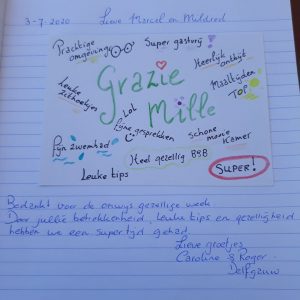 3-7-2020 Lieve Marcel en Mildred
Prachtige omgeving
Super gastvrij!
Heerlijk ontbijt
Leuke zithoekjes
Grazie Mille
Maaltijden TOP
Lol
Fijne gesprekken
Schone mooie kamer
Fijn zwembad
Heel gezellig B&B
Leuke tips
SUPER!
Bedankt voor de onwijs gezellige week
Door jullie betrokkenheid, leuke tips en gezelligheid
hebben we een supertijd gehad.
Lieve groetjes
Caroline & Roger
Delfgauw